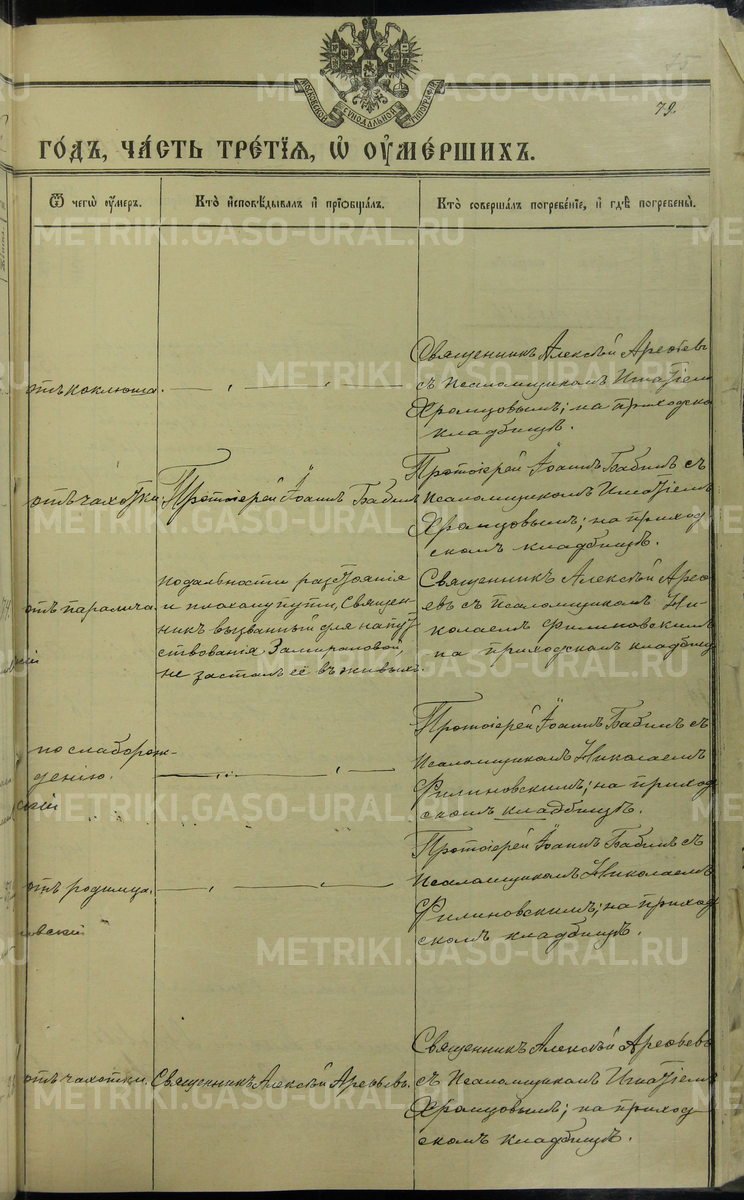 МОСКОВСКОЙ СѴНОДАЛЬНОЙ ТИПОГРАФІИ
79.
ГОДЪ, ЧАСТЬ ТРЕТІЯ, Ѡ ОУМЕРШИХЪ.
Ѿ чегѡ оумеръ.
Кто исповѣдывалъ и пріобщалъ.
Кто совершалъ погребеніе, и гдѣ погребены.
отъ коклюша.
Священникъ Алексѣй Арефьевъ
съ Псаломщикомъ Игнатіемъ
Храмцовымъ; на приходско
кладбищѣ.
отъ чахотки.
Протоіерей Іоаннъ Бабинъ
Протоіерей Іоаннъ Бабинъ съ
Псаломщикомъ Игнатіемъ
Храмцовымъ; на приход
скомъ кладбищѣ.
отъ паралича.
по дальности разстоянія
и плохому пути, Священ
никъ вызванный для напут
ствованія Замираловой,
не засталъ её въ живыхъ.
Священникъ Алексѣй Арефь
евъ съ Псаломщикомъ Ни-
колаемъ Филиновскимъ
на приходскомъ кладбищ
по слаборож-
денію.
Протоіерей Іоаннъ Бабинъ съ
Псаломщикомъ Николаемъ
Филиновскимъ; на приход
скомъ кладбищѣ.
отъ родимца.
Протоіерей Іоаннъ Бабинъ съ
Псаломщикомъ Николаемъ
Филиновскимъ; на приход
скомъ кладбищѣ.
отъ чахотки.
Священникъ Алексѣй Арефьевъ.
Священникъ Алексѣй Арефьевъ
съ Псаломщикомъ Игнатіемъ
Храмцовымъ; на приход
скомъ кладбищѣ.
METRIKI.GASO-URAL.RU